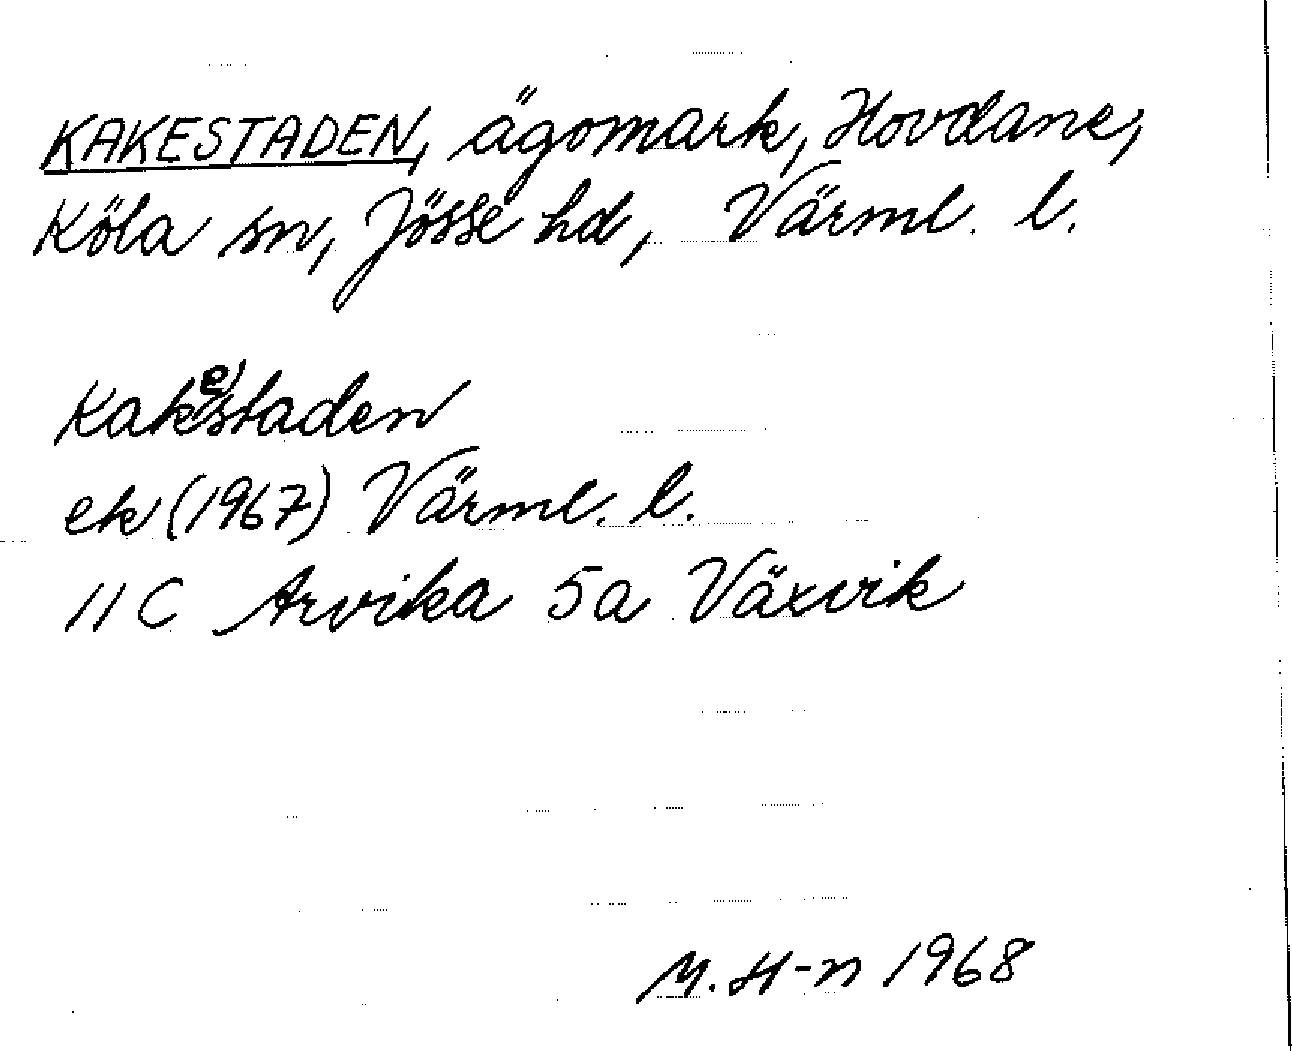 KAKESTADEN, ägomark, Hovdane,
Köla sn, Jösse hd, Värml. l.
Kakestaden
ek (1967) Värml. l.
11 C Arvika 5a Växvik
M. H-n 1968